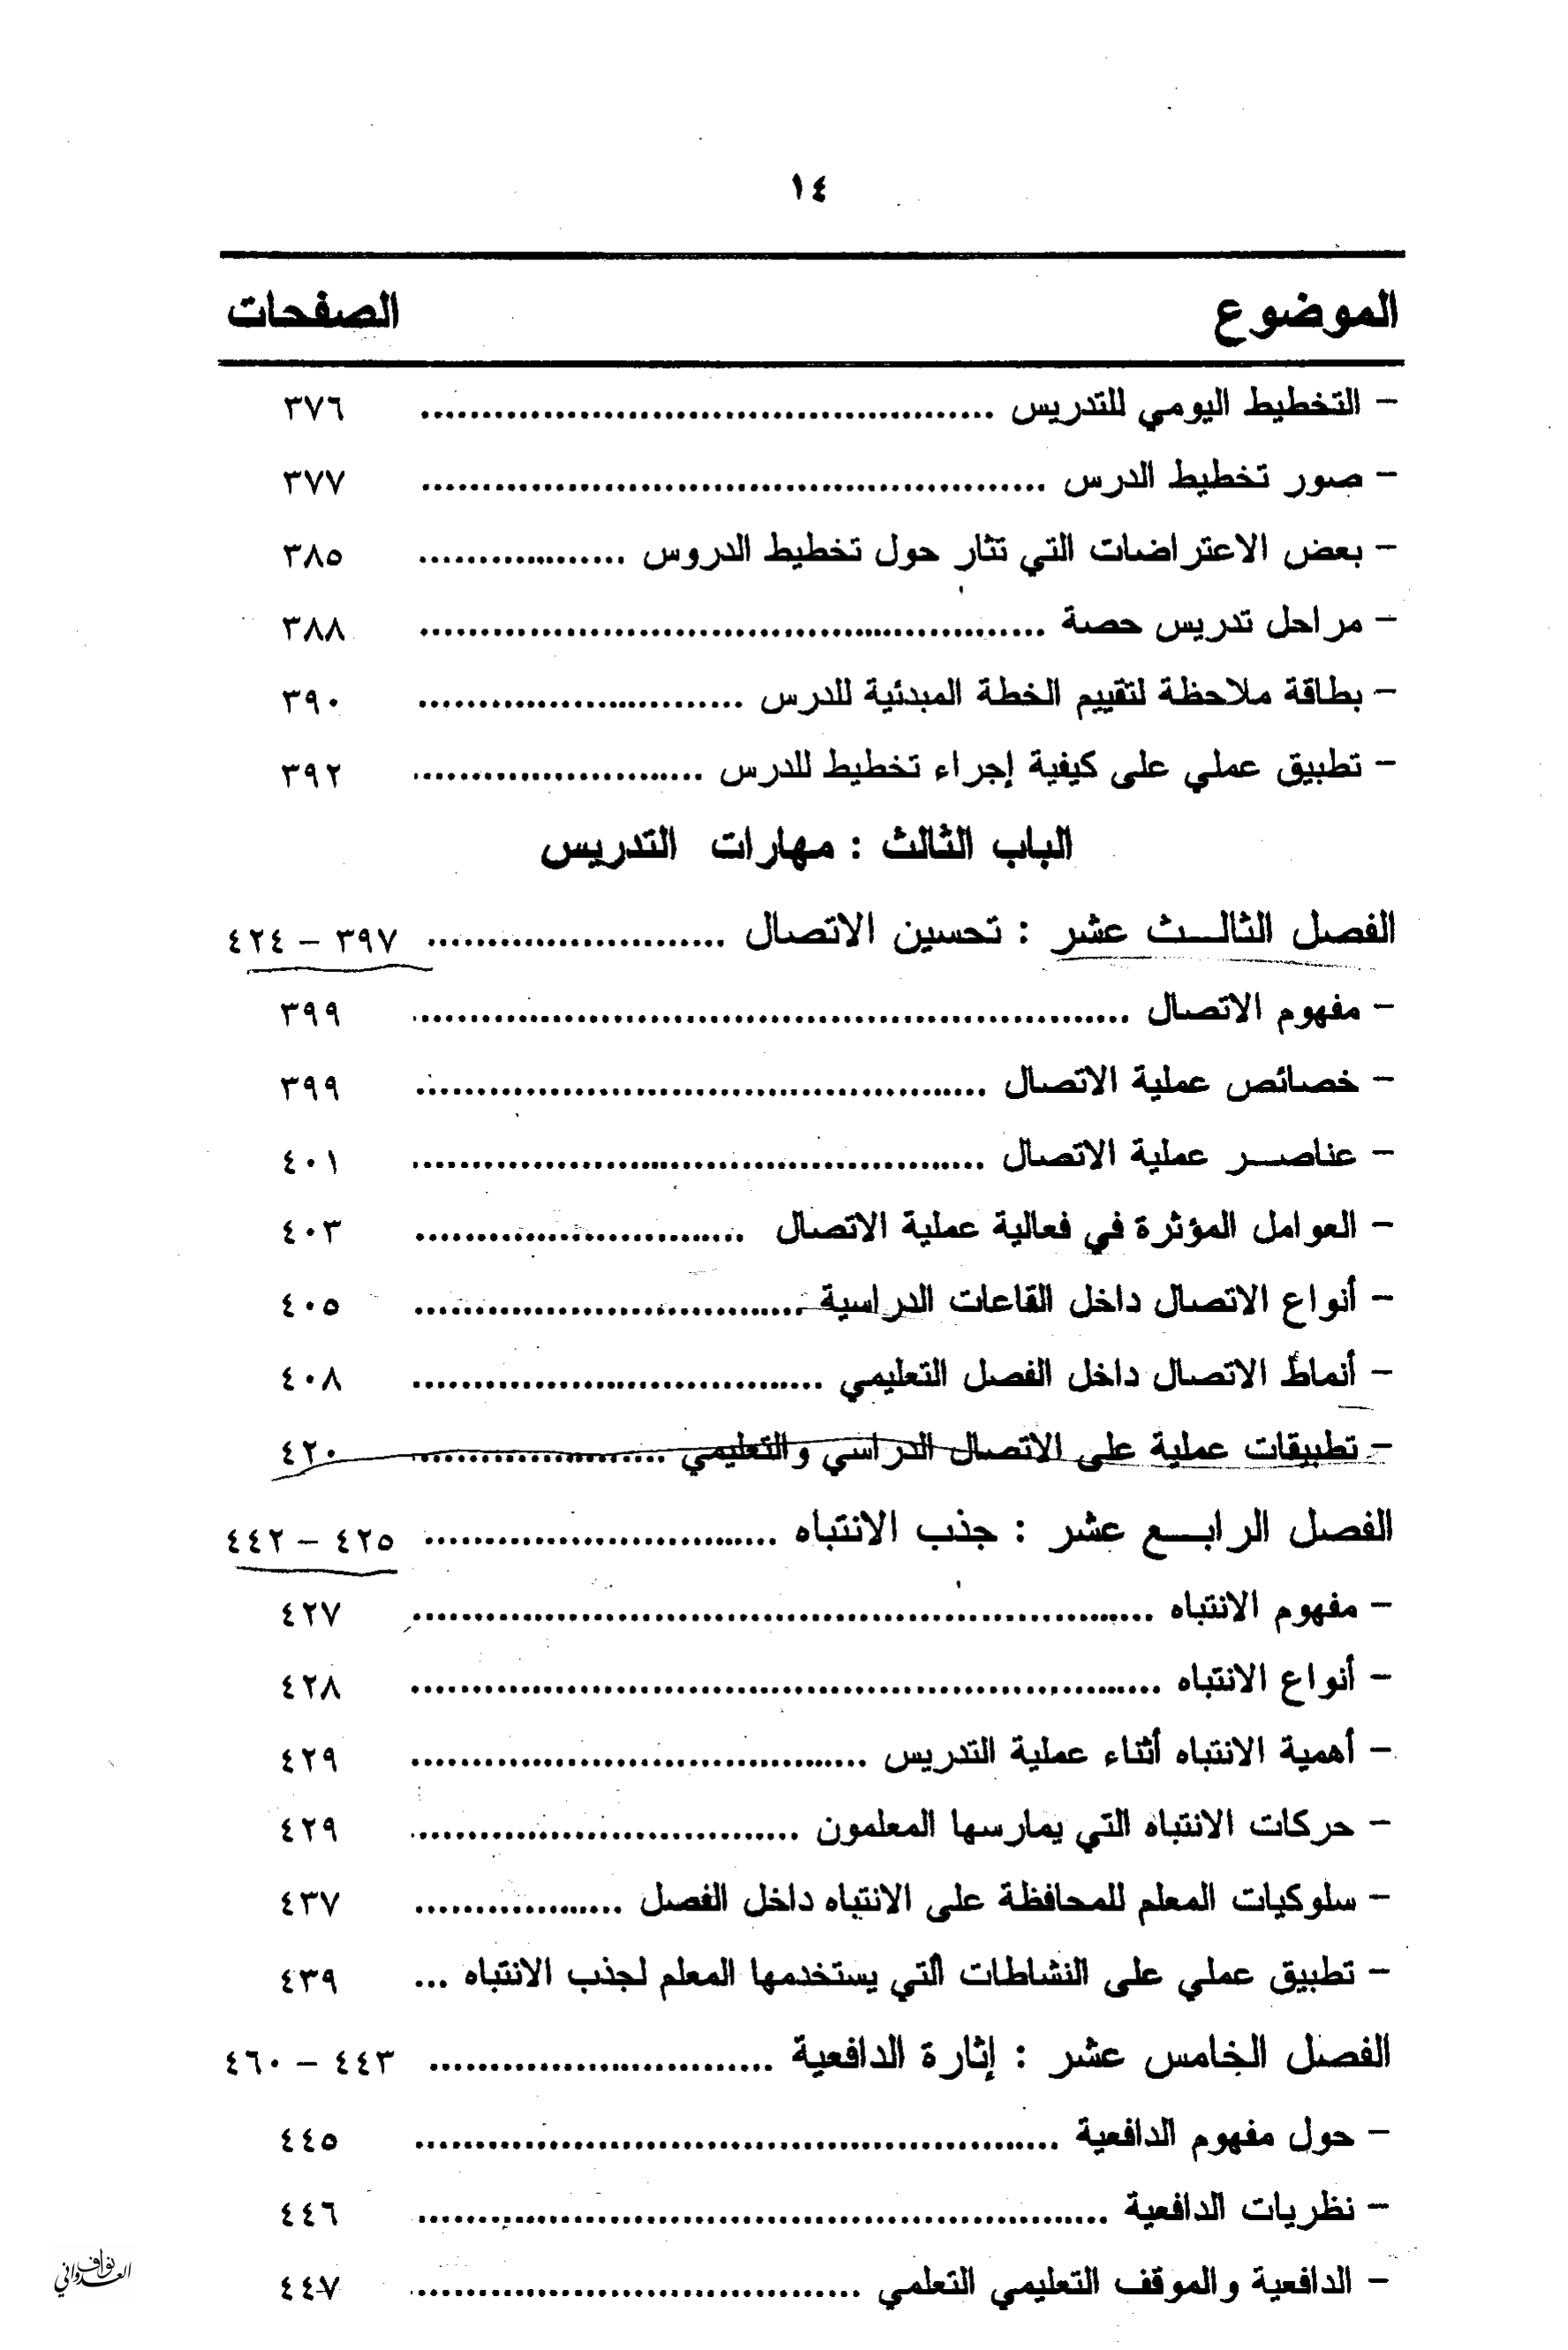 ١٤
الموضوع الصفحات
- التخطيط اليومي للتدريس ................................................ ٣٧٦
- صور تخطيط الدرس .................................................... ٣٧٧
- بعض الاعتراضات التي تثار حول تخطيط الدروس .................. ٣٨٥
- مراحل تدريس حصة .................................................... ٣٨٨
- بطاقة ملاحظة لتقييم الخطة المبدئية للدرس ........................... ٣٩٠
- تطبيق عملي على كيفية إجراء تخطيط للدرس ........................ ٣٩٢
الباب الثالث : مهارات التدريس
الفصل الثالث عشر : تحسين الاتصال ......................... ٣٩٧ – ٤٢٤
- مفهوم الاتصال ............................................................ ٣٩٩
- خصائص عملية الاتصال ................................................ ٣٩٩
- عناصر عملية الاتصال ................................................ ٤٠١
- العوامل المؤثرة في فعالية عملية الاتصال ............................ ٤٠٣
- أنواع الاتصال داخل القاعات الدراسية ................................ ٤٠٥
- أنماط الاتصال داخل الفصل التعليمي .................................. ٤٠٨
- تطبيقات عملية على الاتصال الدراسي والتعليمي ..................... ٤٢٠
الفصل الرابع عشر : جذب الانتباه ............................. ٤٢٥ – ٤٤٢
- مفهوم الانتباه .............................................................. ٤٢٧
- أنواع الانتباه ............................................................... ٤٢٨
- أهمية الانتباه أثناء عملية التدريس ...................................... ٤٢٩
- حركات الانتباه التي يمارسها المعلمون ................................ ٤٢٩
- سلوكيات المعلم للمحافظة على الانتباه داخل الفصل .................. ٤٣٧
- تطبيق عملي على النشاطات التي يستخدمها المعلم لجذب الانتباه ... ٤٣٩
الفصل الخامس عشر : إثارة الدافعية ............................. ٤٤٣ – ٤٦٠
- حول مفهوم الدافعية ...................................................... ٤٤٥
- نظريات الدافعية .......................................................... ٤٤٦
- الدافعية والموقف التعليمي التعلمي ..................................... ٤٤٧
نواف العدواني